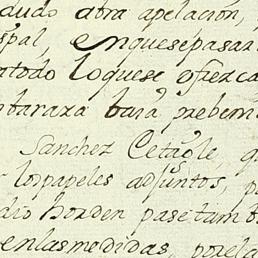 dudo otra apelación,
spal, enquesepasar
atodo loquese ofrezca
mbaraza bara preben
Sanchez Cetagle, q
lospapeles adjuntos, p
dio horden pase tamb
enlasmedidas, porela